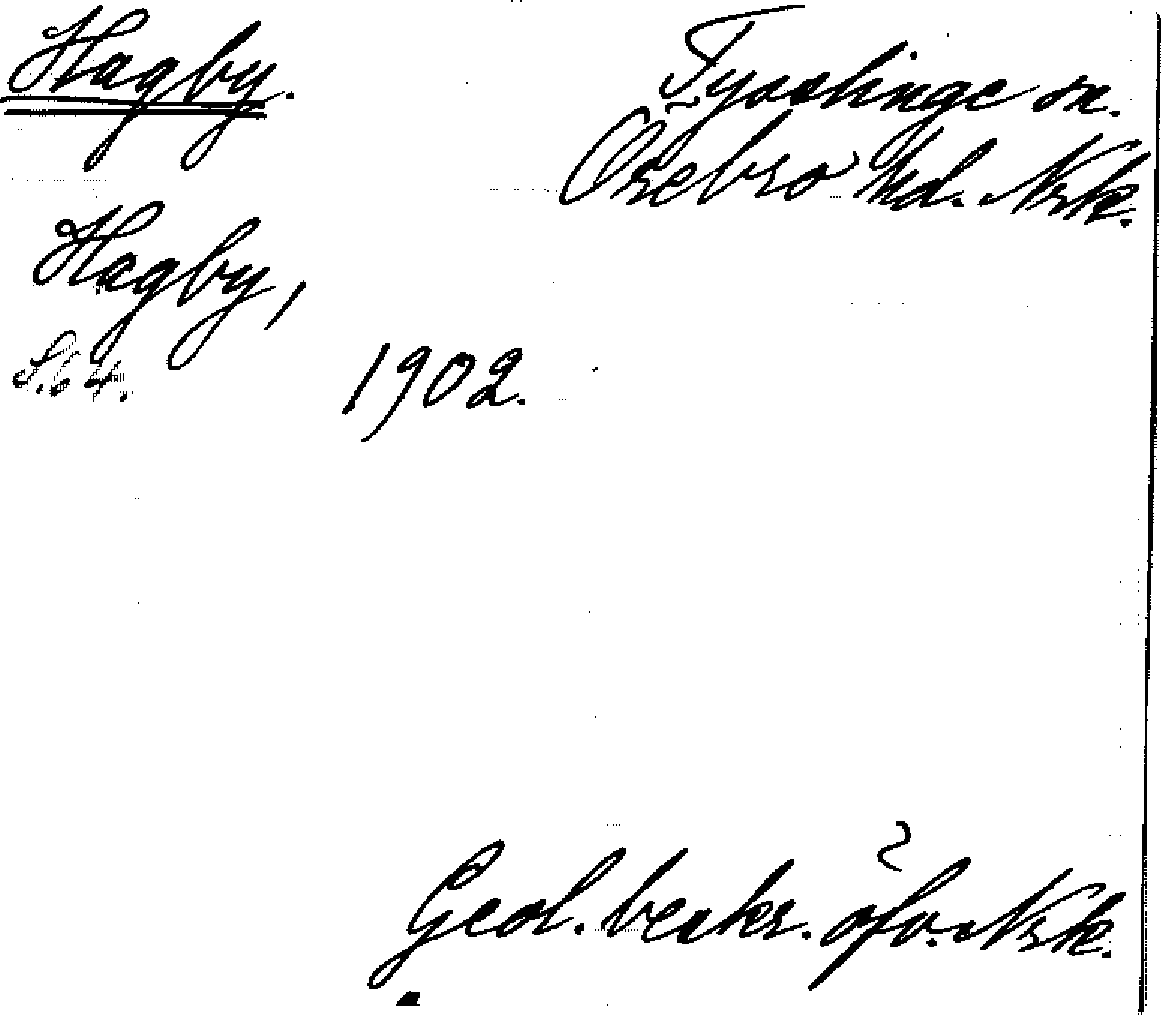 Hagby.
Tysslinge sn.
Örebro hd. Nrk.
Hagby,
S. 64.
1902.
Geol. beskr. öfv. Nrk.